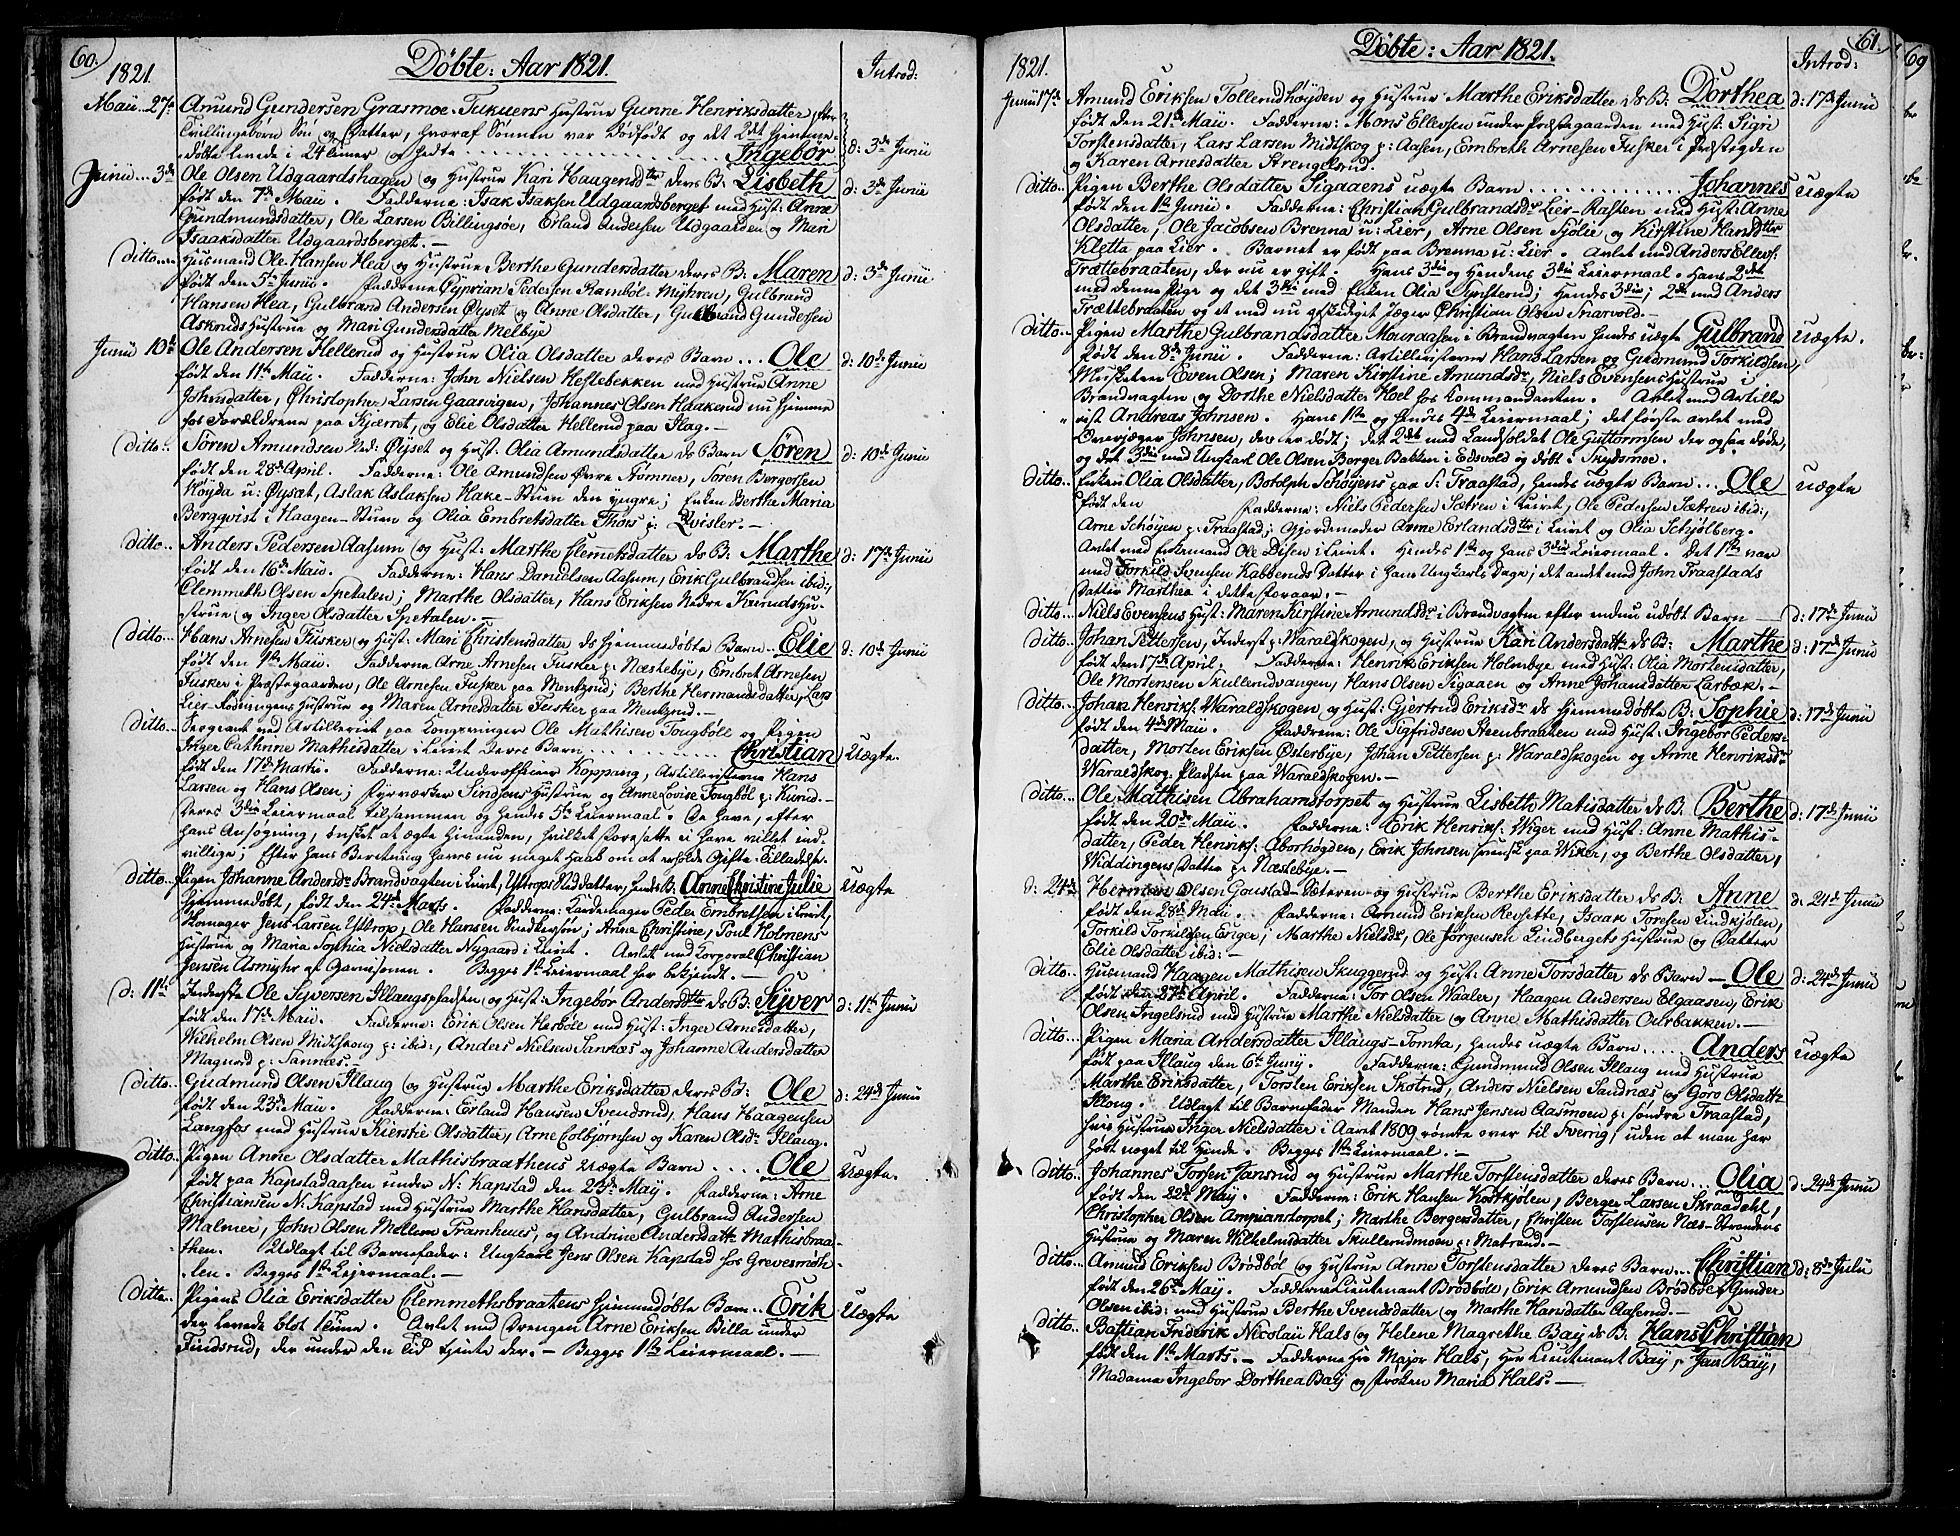 60.
1821.
Döbte: Aar 1821.
Introd:
Maii 27de Amund Gundersen Grasmoe Tukuens Hustrue Gunne Henriksdatter
Tvillingebørn Søn og Datter, hvoraf Sønnen var dödfødt og det 2det hjemme-
døbte levede i 24 timer og hedte Ingebor d: 3de Junii
Junii 3de Ole Olsen Udgaardshagen og Hustrue Kari Haagensdtr deres B: Lisbeth d: 3de Junii
født den 7de Maii. Fadderne: Isak Isaksen Udgaardsberget med Hust: Anne
Gundmundsdatter, Ole Larsen Billingsöe, Erland Andersen Udgaarden og Mari
Isaaksdatter Udgaardsberget.—
ditto Husmand Ole Hansen Hea og Hustrue Berthe Gundersdatter deres B: Maren d: 3de Junii
født den 5te Junii. Fadderne Cyprian Pedersen Rambøl-Myhren, Gulbrand
Hansen Hea, Gulbrand Andersen Øyset og Anne Olsdatter, Gulbrand Gundersen
Askruds Hustrue og Mari Gundersdatter Melbye
Junii 10de Ole Andersen Hellerud og Hustrue Olia Olsdatter deres Barn... Ole d: 10de Junii
født den 11te Maii. Fadderne: John Nielsen Heslebekken med Hustrue Anne
Johnsdatter, Christopher Larsen Gaarvigen, Johannes Olsen Haakerud nu hjemme
hos Forældrene paa Kjerret, og Elie Olsdatter Hellerud paa Flag.—
ditto Sören Amundsen Ned: Øyset og Hust: Olia Amundsdatter ds Barn Sören d: 10de Junii
født den 28de April. Fadderne: Ole Amundsen Øvre Tömner, Sören Bergersen
Høyda u: Øyset, Aslak Aslaksen Hake-Stuen den yngre; Enken Berthe Maria
Bergqvist i Haagen-Stuen og Olia Embretsdatter Thors p: Qvisler.—
ditto Anders Pedersen Aasum og Hust: Marthe Clemetsdatter ds B: Marthe d: 17de Junii
født den 16de Maii. Fadderne: Hans Danielsen Aasum, Erik Gulbrandsen ibid:,
Clemmeth Olsen Spetalen; Marthe Olsdatter, Hans Eriksen Nedre Kuruds Hu-
strue og Inger Olsdatter Spetalen.—
ditto Hans Arnesen Fusker og Hust: Mari Christensdatter ds hjemmedøbte Barn Elie d: 10de Junii
født den 1ste Maii. Fadderne Arne Arnesen Fusker p: Næstebye, Embret Arnesen
Fusker i Præstegaarden, Ole Arnesen Fusker paa Menkrud; Berthe Hermansdatter, Lars
Lier-Rodningens Hustrue og Maren Arnesdatter Fusker paa Menkrud.—
ditto Sergeant ved Artilleriet paa Kongsvinger Ole Mathisen Tougbøle og Pigen
Inger Cathrine Mathisdatter i Leiret deres Barn Christian Uægte.
født den 17de Martii. Fadderne: Underofficier Kopping, Artilleristerne Hans
Larsen og Hans Olsen; Fyrværker Sindsens Hustrue og Anne Lovise Tougbøl p: Kurud.—
Deres 3die Leiermaal tilsammen og hendes 5te Leiermaal. De have, efter
hans Ansøgning, ønsket at ægte hinanden, hvilket Foresatte ei have villet ind-
villige; Efter hans Beretning haves nu meget Haab om at erholde Gifte-Tilladelse.
ditto Pigen Johanne Andersdr Brandvagten i Leiret, Ustrops Steddatter, hendes B: Anne Christine Julie Uægte
hjemmedøbt, født den 24de Marts. Fadderne: Kardemager Peder Embretsen i Leiret,
Skomager Jens Larsen Usttrop, Ole Hansen Lindkersen; Anne Christine, Poul Holmens
Hustrue og Maria Sophia Nielsdatter Nygaard i Leiret. Avlet med Korporal Christian
Jensen Asmyhr af Garnisonen. Begges 1ste Leiermaal har bekjendt.—
d: 11te Inderste Ole Syversen Illaugspladsen og Hust: Ingebör Andersdtr ds B: Syver d: 11te Junii
født den 17de Maii. Fadderne: Erik Olsen Herbøle med Hust: Inger Arnesdatter,
Wilhelm Olsen Midtskoug p: ibid:, Anders Nielsen Sannæs og Johanne Andersdatter
Magnord p: Sannæs.—
ditto Gudmund Olsen Illaug og Hustrue Marthe Eriksdatter deres B: Ole d: 24de Junii
født den 23de Maii. Fadderne: Erland Hansen Svensrud, Hans Haagensen
Langfos med Hustrue Kierstie Olsdatter, Arne Colbjørnsen og Karen Olsdr Illaug.
ditto Pigen Anne Olsdatter Mathisbraathens Uægte Barn.... Ole Uægte.
født paa Kapstadaasen under N: Kapstad den 23de May. Fadderne: Arne
Christiansen N: Kapstad med Hustrue Marthe Hansdatter, Gulbrand Andersen
Malmer, John Olsen Mellem Framhuus, og Andrine Andersdattr Mathisbraa-
then. Udlagt til Barnefader: Ungkarl Jens Olsen Kapstad hos Grevesmøh-
len. Begges 1ste Leiermaal.—
ditto Pigens Olia Eriksdatter Clemmethsbraatens hjemmedøbte Barn.. Erik Uægte
der levede blot 1 time. Avlet med Drengen Arne Eriksen Billa under
Findsrud, der under den Tid tjente der.— Begges 1ste Leiermaal.—
61.
1821.
Döbte: Aar 1821.
Introd:
Junii 17de Amund Eriksen Tollerudhøyden og Hustrue Marthe Eriksdatter ds B: Dorthea d: 17de Junii
født den 21de Maii. Fadderne: Mons Ellevsen under Præstegaarden med Hust: Sigri
Torstensdatter, Lars Larsen Midtskog p: Aasen, Embreth Arnesen Fusker i Præstegden
og Karen Arnesdatter Strengelsrud.
ditto Pigen Berthe Olsdatter Sigaaens uægte Barn Johannes uægte
født den 1ste Junii. Fadderne: Christian Gulbrandsdr Lier-Rasten med Hust: Anne
Olsdatter, Ole Jacobsen Brenna u: Lier, Arne Olsen Sjølie og Kirstine Hansdtter
Kletta paa Lier. Barnet er født paa Brenna u: Lier. Avlet med Anders Ellevs:
Trættebraaten, der nu er gift. Hans 3die og hendes 3die Leiermaal. Hans 2det
med denne Pige og det 3die med Enken Olia Tynsterud; hendes 3die; 2de med Anders
Trættebraaten og et med nu afskediget Jæger Christian Olsen Snarvold.—
ditto Pigen Marthe Gulbrandsdatter Mouraasen i Brandvagten hendes uægte Gulbrand uægte.
født den 8de Junii. Fadderne: Artilleristerne Hans Larsen og Gudmund Torkildsen,
Musketeer Even Olsen; Maren Kirstine Amundsdr, Niels Evensens Hustrue i
Brandvagten og Dorthe Nielsdatter Hoel hos Kommandanten. Avlet med Artille
rist Andreas Johnsen. Hans 1ste og hendes 4de Leiermaal; det første avlet med
Overjæger Johnsen, der er død; det 2det med Landsoldat Ole Guttormsen der ogsaa døde,
og det 3die med Ungkarl Ole Olsen Berger Bakken i Edsvold og døbt i Skydsmoe.—
ditto Enken Olia Olsdatter, Botolph Schøyens paa S: Traastad, hendes uægte Barn... Ole uægte
født den Fadderne: Niels Pedersen Sætren i Leiret, Ole Pedersen Sætren ibid:,
Arne Schöyen p: Traastad; Gjordemoder Anne Erlandsdtr i Leiret og Olia Schjølberg.
Avlet med Enkemand Ole Disen i Leiret. Hendes 1ste og hans 3die Leiermaal. Det 1ste var
med Torkild Svensen Kabberuds Datter i hans Ungkarls Dage; det andet med John Traastads
Datter Marthea i dette Foraar.—
ditto Niels Evensens Hust: Maren Kirstine Amundsdr i Brandvagten efter endnu udøbt Barn — d: 17de Junii
ditto Johan Pettersen, Inderst p: Waraldskogen, og Hustrue Kari Andersdattr ds B: Marthe d: 17de Junii
født den 17de April. Fadderne: Henrik Eriksen Holmbye med Hust: Olia Mortensdatter,
Ole Mortensen Skullerudvangen, Hans Olsen Sigaaen og Anne Johansdatter Larbæk.—
ditto Johan Henriks: Waraldskogen og Hust: Gjertrud Eriksdr ds hjemmedøbte B: Sophie d: 17de Junii
født den 4de Maii. Fadderne: Ole Sigfridsen Steenbraaten med Hust: Ingebor Peders-
datter, Morten Eriksen Østerbye, Johan Pettersen p: Waraldskogen og Anne Henriksdr
Waraldskog-Pladsen paa Waraldskogen.—
ditto Ole Mathisen Abrahamstorpet og Hustrue Lisbeth Matisdatter ds B. Berthe d: 17de Junii
født den 20de Maii. Fadderne: Erik Henriks: Wiger med Hust: Anne Mathis-
datter, Peder Henriks: Aborhögden, Erik Johnsen Svensk paa Wiker, og Berthe Olsdatter,
Widdingens Datter p: Næstebye.—
d: 24de Herman Olsen Gonstad-Poteren og Hustrue Berthe Eriksdatter ds B: Anne d: 24de Junii
født den 28de Maii. Fadderne: Amund Eriksen Revsette, Isaak Toresen Lindkjolen,
Torkild Torkildsen Eriger; Marthe Nielsdr, Ole Jörgensen Lindbergets Hustrue og Datter
Elie Olsdatter ibid:—
ditto Husmand Haagen Mathisen Skuggerud og Hust: Anne Torsdatter ds Barn — Ole d: 24de Junii
født den 27de April. Fadderne: Tor Olsen Waaler, Haagen Andersen Elgaasen, Erik
Olsen Ingelsrud med Hustrue Marthe Nielsdatter og Anne Mathisdatter Aurbakken.—
ditto Pigen Maria Andersdatter Illaugs-Tomta, hendes uægte Barn Anders uægte
født paa Illaug den 6te Juny. Fadderne: Gundmund Olsen Illaug med Hustrue
Marthe Eriksdatter, Torsten Eriksen Skotrud, Anders Nielsen Sandnæs og Goro Olsdattr
Illoug. Udlagt til Barnefader Manden Hans Jensen Aasmoen p: søndre Traastad,
hvis Hustrue Inger Nielsdatter i Aaret 1809 rømte over til Sverrig, uden at man har
hørt noget til hende. Begges 1ste Leiermaal.—
ditto Johannes Torsen Jansrud og Hustrue Marthe Torstensdatter deres Barn... Olia d: 24de Junii
født den 22de May. Fadderne: Erik Hansen Kortkjølen, Berger Larsen Skraadahl,
Christopher Olsen Ampianstorpet; Marthe Bergersdatter, Christen Torstensen Næs-Strandens
Hustrue og Maren Wilhelmsdatter Skullerudmoen p: Matrand.—
ditto Amund Eriksen Brödböl og Hustrue Anne Torstensdatter deres Barn... Christian d: 8de Julii
født den 26de May. Fadderne Lieutenant Brödböl, Erik Amundsen Brödböl, Gunder
Olsen ibid: med Hustrue Berthe Svendsdatter og Marthe Hansdatter Aaserud.—
ditto Bastian Friderik Nicolaii Hals og Helene Magrethe Bay ds B: Hans Christian
født den 1ste Marts.— Fadderne Hr Major Hals, Hr Lieutinant Bay, Jens Bay,
Madame Ingebor Dorthea Bay og Frøken Maria Hals.—
69